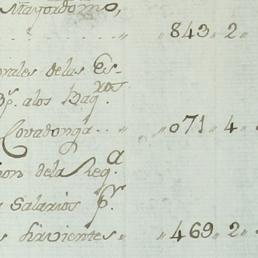 Mayordomo,
" 843 " 2 "
rales de las Es-
Dª. a los Baqros
Covadonga .. " " 071 " 4 "
on de la Reqª
s Salarios pr.
s sirvientes " " 469 " 2 "